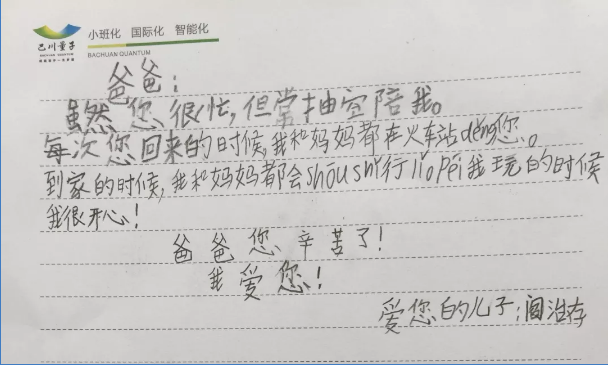 巴川量子
BACHUAN QUANTUM
小班化 国际化 智能化
BACHUAN QUANTUM
爸爸：
虽然您很忙,但常抽空陪我。
每次您回来的时候,我和妈妈都在火车站děng您。
到家的时候,我和妈妈都会shōu shí行lǐ。péi我玩的时候
我很开心!
爸爸您辛苦了!
我爱您!
爱您的儿子:阎治存